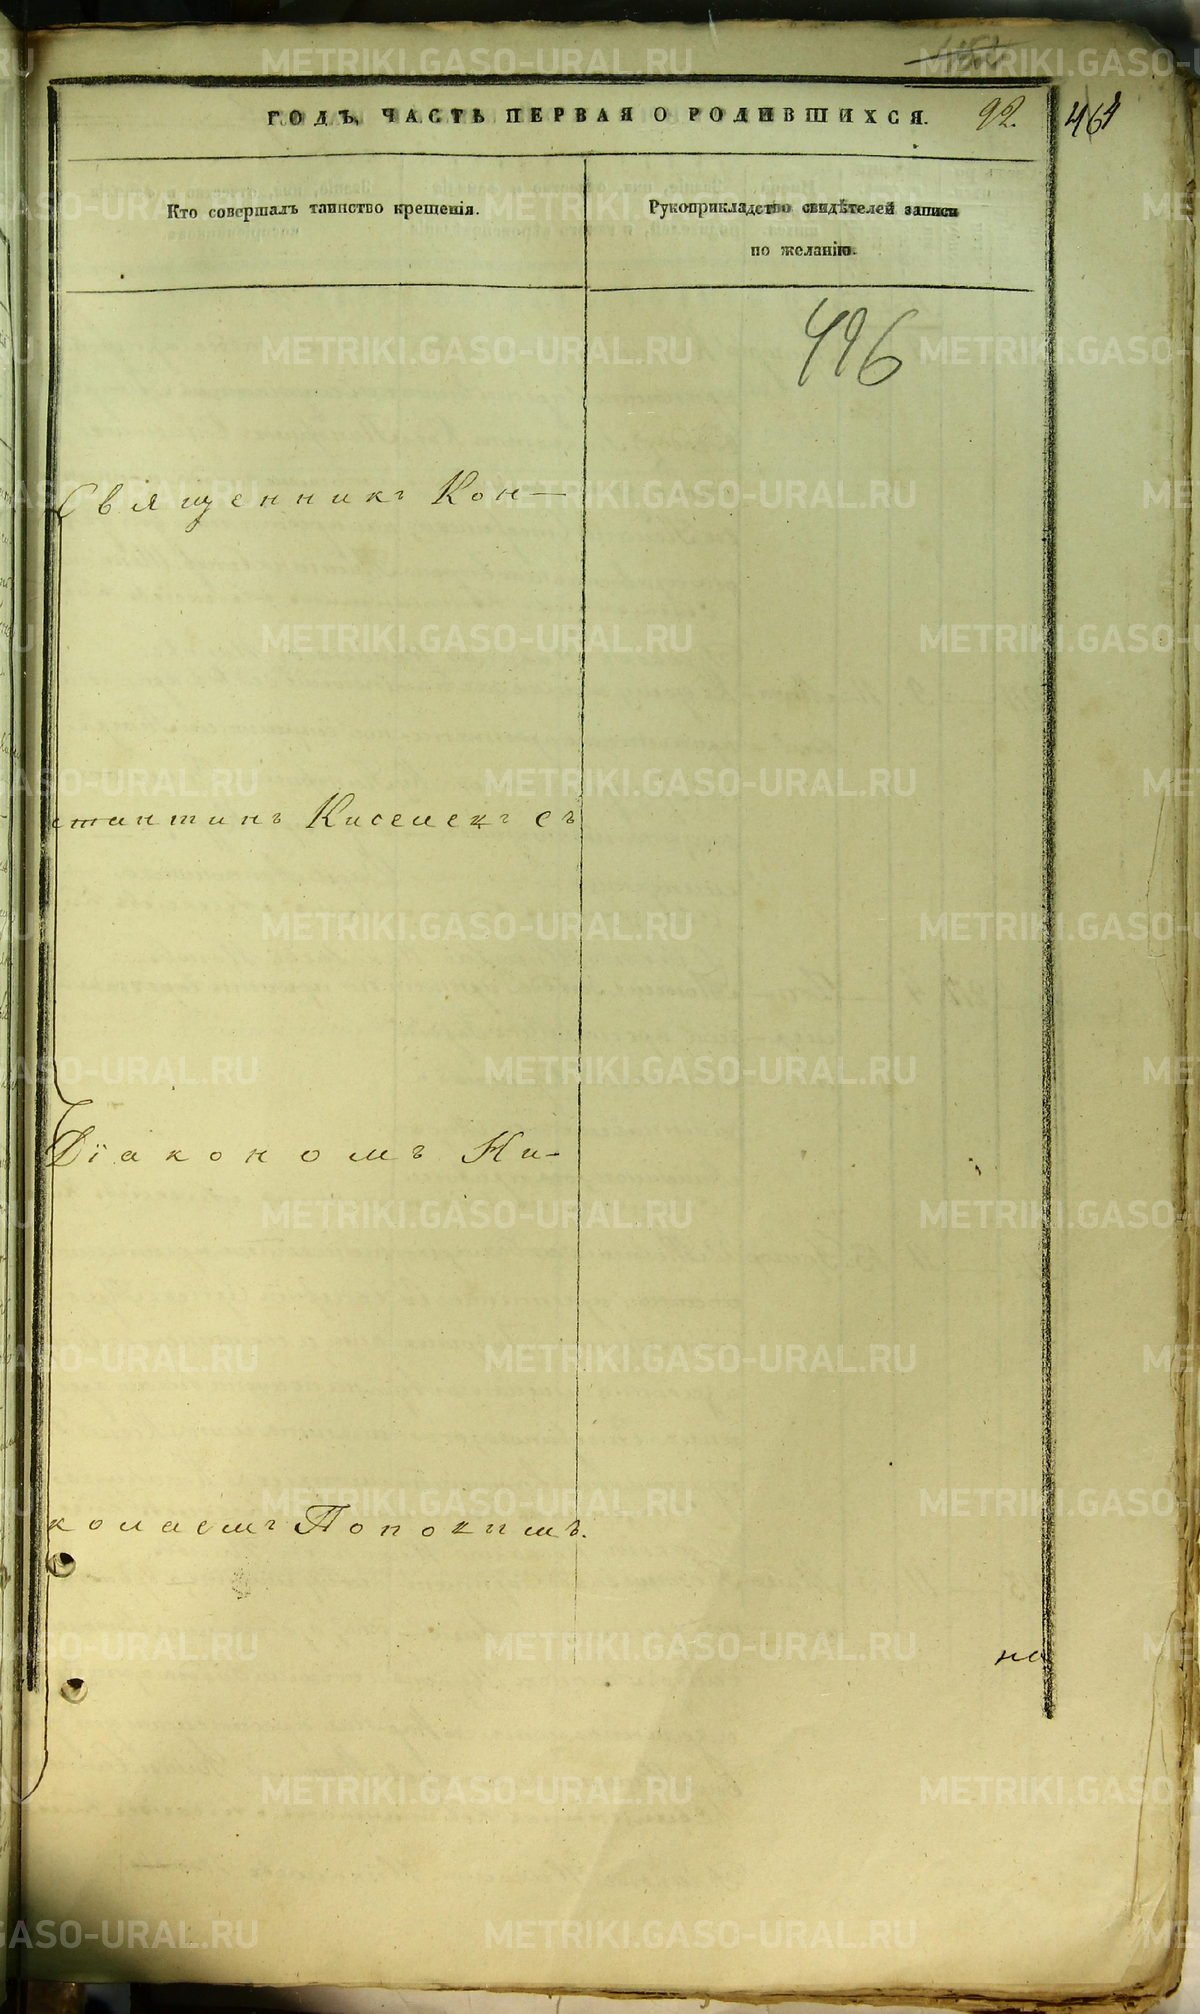 ГОДЪ, ЧАСТЬ ПЕРВАЯ О РОДИВШИХСЯ. 92. 464
Кто совершалъ таинство крещенія.
Рукоприкладство свидѣтелей записи
по желанію.
496
Священникъ Кон-
стантинъ Киселевъ съ
Діакономъ Ни-
колаемъ Поповымъ.
на
METRIKI.GASO-URAL.RU